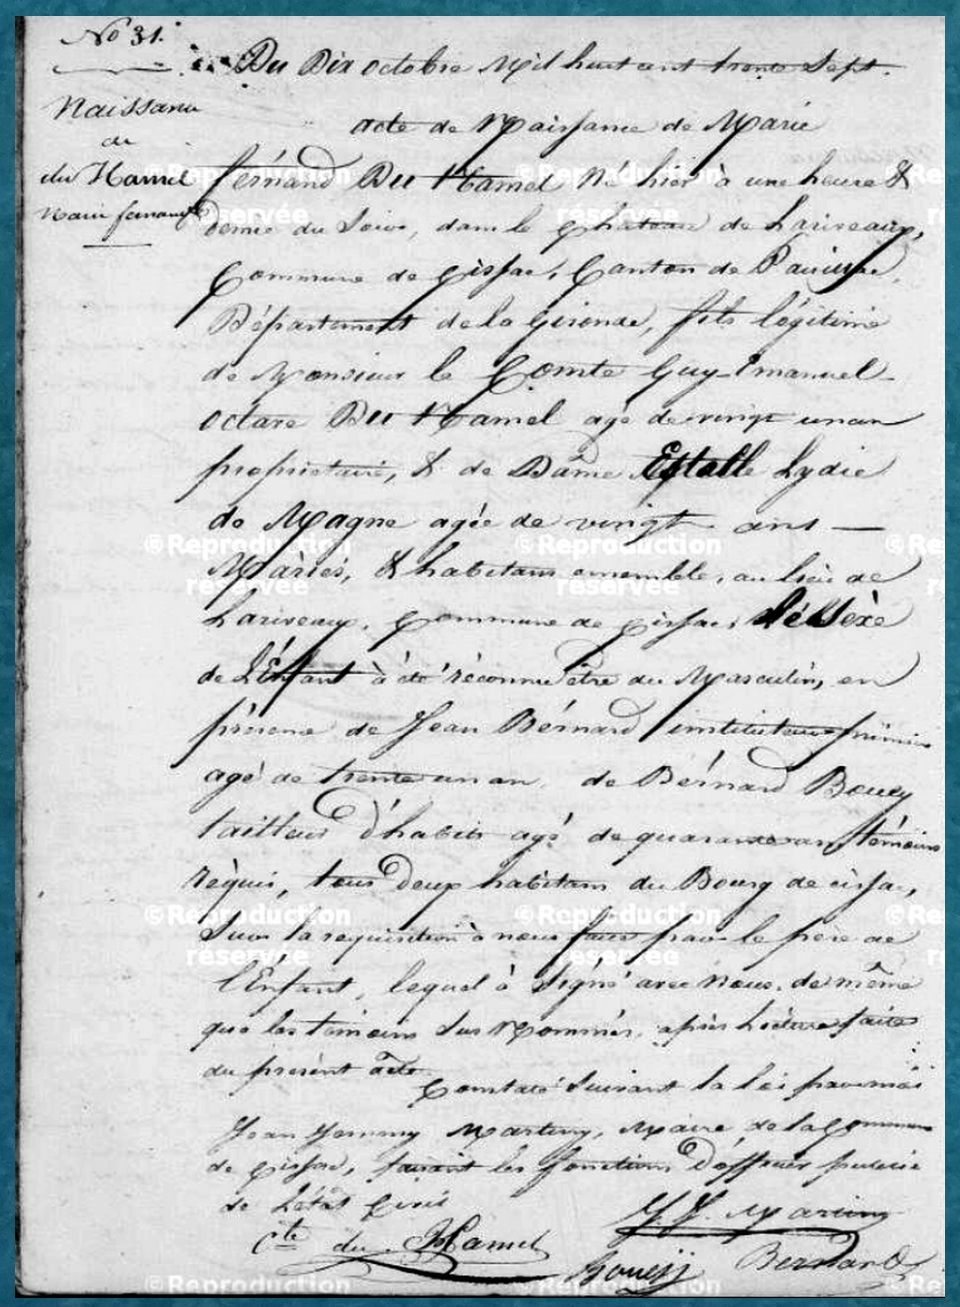 No 31.
Naissance
de
du Hamel
Marie fernand
Du Dix octobre Mil huit cent trente Sept.
acte de Naissance de Marie
fernand Du Hamel Né hier à une heure &
demie du Soir, dans le Chateau de Lariveaux,
Commune de Cissac, Canton de Pauillac,
Département de la Gironde, fils légitime
de Monsieur le Comte Guy-Emanuel-
octave Du Hamel agé de vingt un an
propriétaire, & de Dame Estelle Lydie
de Magne agée de vingt ans —
Mariés, & habitans ensemble, au lieu de
Lariveaux, Commune de Cissac, Lé Sèxe
de L'Enfant à été réconnu être du Masculin, en
présence de Jean Bérnard instituteur primaire
agé de trente un an, de Bérnard Bouey
tailleur d'habits agé de quarante ans témoins
réquis, tous deux habitans du Bourg de cissac,
Sur la requisition à nous faite par le père de
l'Enfant, lequel à Signé avec Nous, de même
que les témoins Sus Nommés, après Lécture faite
du présent acte.
Constaté Suivant la loi par moi
Jean Martin, Maire de la Commune
de Cissac, faisant les fonctions D'officier public
de L'état Civil
Cte du Hamel
J. J. Martin
Bouey
Bernard
©Reproduction réservée